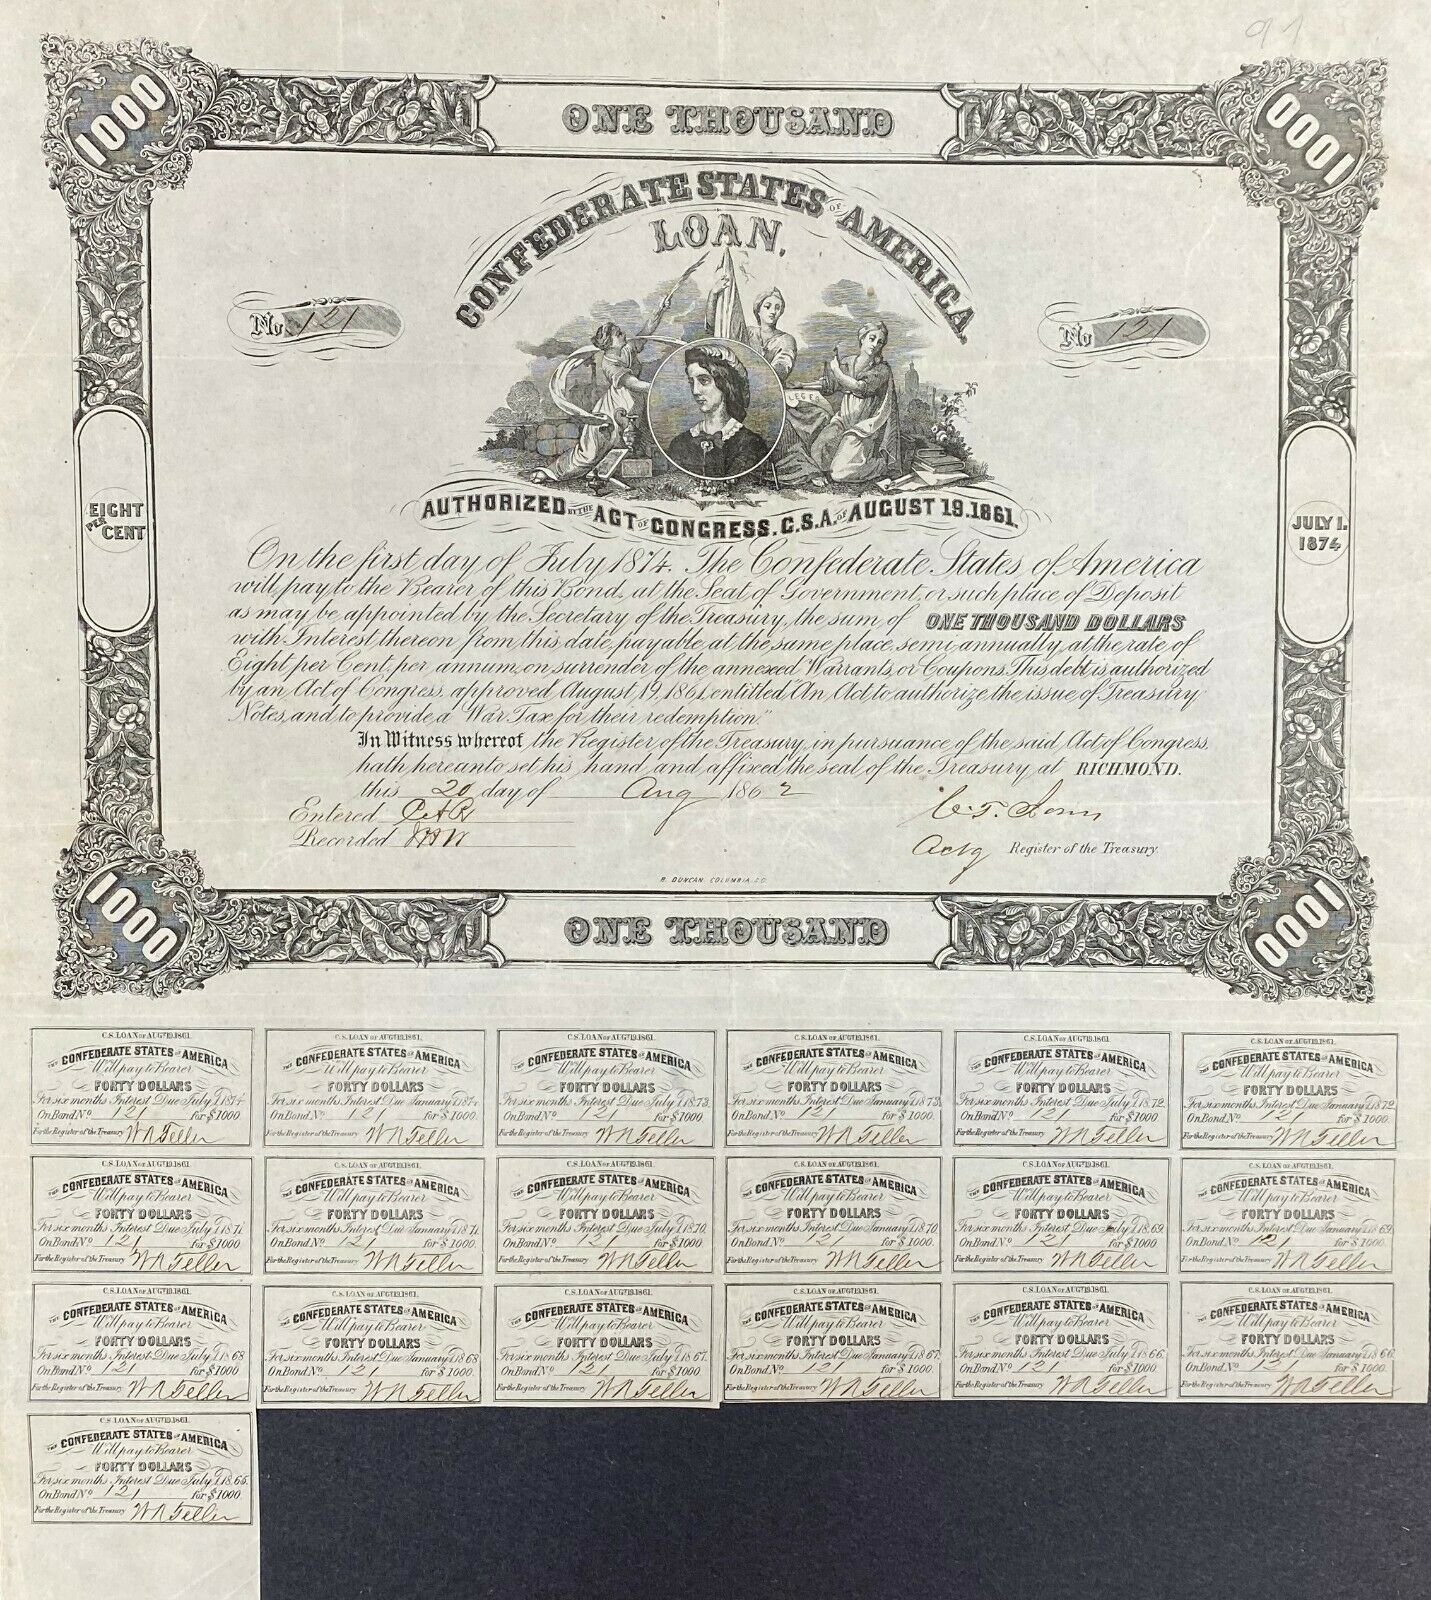 97
1000
ONE THOUSAND
1000
CONFEDERATE STATES OF AMERICA
LOAN,
No. 121
No 121
LEGES
AUTHORIZED BY THE ACT OF CONGRESS. C.S.A. OF AUGUST 19.1861.
EIGHT
PER
CENT
JULY 1.
1874
On the first day of July 1874. The Confederate States of America
will pay to the Bearer of this Bond, at the Seat of Government, or such place of Deposit
as may be appointed by the Secretary of the Treasury, the sum of ONE THOUSAND DOLLARS
with Interest thereon from this date, payable at the same place, semi-annually, at the rate of
Eight per Cent, per annum, on surrender of the annexed Warrants, or Coupons. This debt is authorized
by an Act of Congress, approved August 19, 1861, entitled "An Act to authorize the issue of Treasury
Notes, and to provide a War Tax for their redemption."
In Witness whereof the Register of the Treasury, in pursuance of the said Act of Congress,
hath hereunto set his hand, and affixed the seal of the Treasury, at RICHMOND.
this 20 day of Aug 1862
Entered
Recorded
Actg Register of the Treasury.
B. DUNCAN. COLUMBIA. S.C.
1000
ONE THOUSAND
1000
C.S. LOAN OF AUGT. 19.1861.
THE CONFEDERATE STATES OF AMERICA
Will pay to Bearer
FORTY DOLLARS
For six months Interest Due July 1, 1874
On Bond No 121 for $1000
For the Register of the Treasury
C.S. LOAN OF AUGT. 19.1861.
THE CONFEDERATE STATES OF AMERICA
Will pay to Bearer
FORTY DOLLARS
For six months Interest Due January 1, 1874
On Bond No 121 for $1000
For the Register of the Treasury
C.S. LOAN OF AUGT. 19.1861.
THE CONFEDERATE STATES OF AMERICA
Will pay to Bearer
FORTY DOLLARS
For six months Interest Due July 1, 1873.
On Bond No 121 for $1000
For the Register of the Treasury
C.S. LOAN OF AUGT. 19.1861.
THE CONFEDERATE STATES OF AMERICA
Will pay to Bearer
FORTY DOLLARS
For six months Interest Due January 1, 1873.
On Bond No 121 for $1000
For the Register of the Treasury
C.S. LOAN OF AUGT. 19.1861.
THE CONFEDERATE STATES OF AMERICA
Will pay to Bearer
FORTY DOLLARS
For six months Interest Due July 1, 1872.
On Bond No 121 for $1000
For the Register of the Treasury
C.S. LOAN OF AUGT. 19.1861.
THE CONFEDERATE STATES OF AMERICA
Will pay to Bearer
FORTY DOLLARS
For six months Interest Due January 1, 1872.
On Bond No 121 for $1000
For the Register of the Treasury
C.S. LOAN OF AUGT. 19.1861.
THE CONFEDERATE STATES OF AMERICA
Will pay to Bearer
FORTY DOLLARS
For six months Interest Due July 1, 1871.
On Bond No 121 for $1000.
For the Register of the Treasury
C.S. LOAN OF AUGT. 19.1861.
THE CONFEDERATE STATES OF AMERICA
Will pay to Bearer
FORTY DOLLARS
For six months Interest Due January 1, 1871.
On Bond No 121 for $1000.
For the Register of the Treasury
C.S. LOAN OF AUGT. 19.1861.
THE CONFEDERATE STATES OF AMERICA
Will pay to Bearer
FORTY DOLLARS
For six months Interest Due July 1, 1870.
On Bond No 121 for $1000.
For the Register of the Treasury
C.S. LOAN OF AUGT. 19.1861.
THE CONFEDERATE STATES OF AMERICA
Will pay to Bearer
FORTY DOLLARS
For six months Interest Due January 1, 1870.
On Bond No 121 for $1000.
For the Register of the Treasury
C.S. LOAN OF AUGT. 19.1861.
THE CONFEDERATE STATES OF AMERICA
Will pay to Bearer
FORTY DOLLARS
For six months Interest Due July 1, 1869.
On Bond No 121 for $1000.
For the Register of the Treasury
C.S. LOAN OF AUGT. 19.1861.
THE CONFEDERATE STATES OF AMERICA
Will pay to Bearer
FORTY DOLLARS
For six months Interest Due January 1, 1869.
On Bond No 121 for $1000.
For the Register of the Treasury
C.S. LOAN OF AUGT. 19.1861.
THE CONFEDERATE STATES OF AMERICA
Will pay to Bearer
FORTY DOLLARS
For six months Interest Due July 1, 1868
On Bond No 121 for $1000
For the Register of the Treasury
C.S. LOAN OF AUGT. 19.1861.
THE CONFEDERATE STATES OF AMERICA
Will pay to Bearer
FORTY DOLLARS
For six months Interest Due January 1, 1868.
On Bond No 121 for $1000
For the Register of the Treasury
C.S. LOAN OF AUGT. 19.1861.
THE CONFEDERATE STATES OF AMERICA
Will pay to Bearer
FORTY DOLLARS
For six months Interest Due July 1, 1867.
On Bond No 121 for $1000
For the Register of the Treasury
C.S. LOAN OF AUGT. 19.1861.
THE CONFEDERATE STATES OF AMERICA
Will pay to Bearer
FORTY DOLLARS
For six months Interest Due January 1, 1867.
On Bond No 121 for $1000
For the Register of the Treasury
C.S. LOAN OF AUGT. 19.1861.
THE CONFEDERATE STATES OF AMERICA
Will pay to Bearer
FORTY DOLLARS
For six months Interest Due July 1, 1866.
On Bond No 121 for $1000
For the Register of the Treasury
C.S. LOAN OF AUGT. 19.1861.
THE CONFEDERATE STATES OF AMERICA
Will pay to Bearer
FORTY DOLLARS
For six months Interest Due January 1, 1866.
On Bond No 121 for $1000
For the Register of the Treasury
C.S. LOAN OF AUGT. 19.1861.
THE CONFEDERATE STATES OF AMERICA
Will pay to Bearer
FORTY DOLLARS
For six months Interest Due July 1, 1865.
On Bond No 121 for $1000.
For the Register of the Treasury